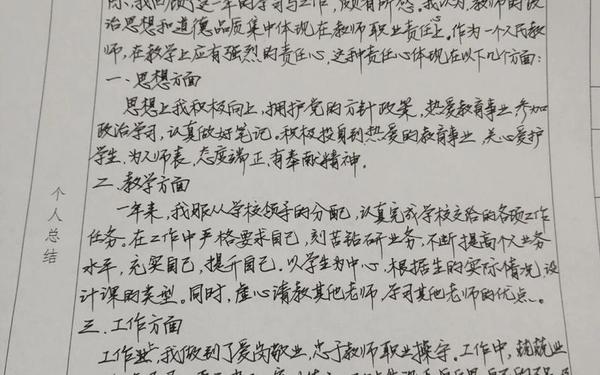 际，我回顾了这一年的学习与工作，颇有所感。我认为，教师的政
治思想和道德品质集中体现在教师职业责任上。作为一个人民教
师，在教学上应有强烈的责任心，这种责任心体现在以下几个方面：
一、思想方面
思想上我积极向上，拥护党的方针政策，热爱教育事业，参加
政治学习，认真做好笔记。积极投身到热爱的教育事业，关心爱护
学生，为人师表，态度端正，有奉献精神。
二、教学方面
一年来，我服从学校领导的分配，认真完成学校交给的各项工作
任务。在工作中严格要求自己，刻苦钻研业务，不断提高个人业务
水平，充实自己，提升自己。以学生为中心，根据生的实际情况，设
计课的类型。同时，虚心请教其他老师，学习其他老师的优点。
三、工作方面
工作上，我做到了爱岗敬业，忠于教师职业操守。工作中，兢兢业
个人总结